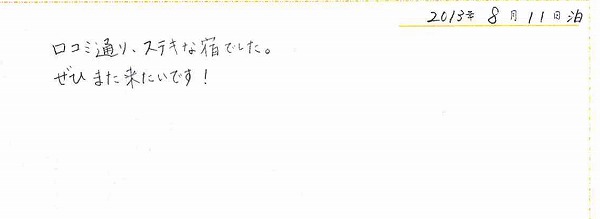 2013年 8月11日泊
口コミ通り、ステキな宿でした。
ぜひまた来たいです！